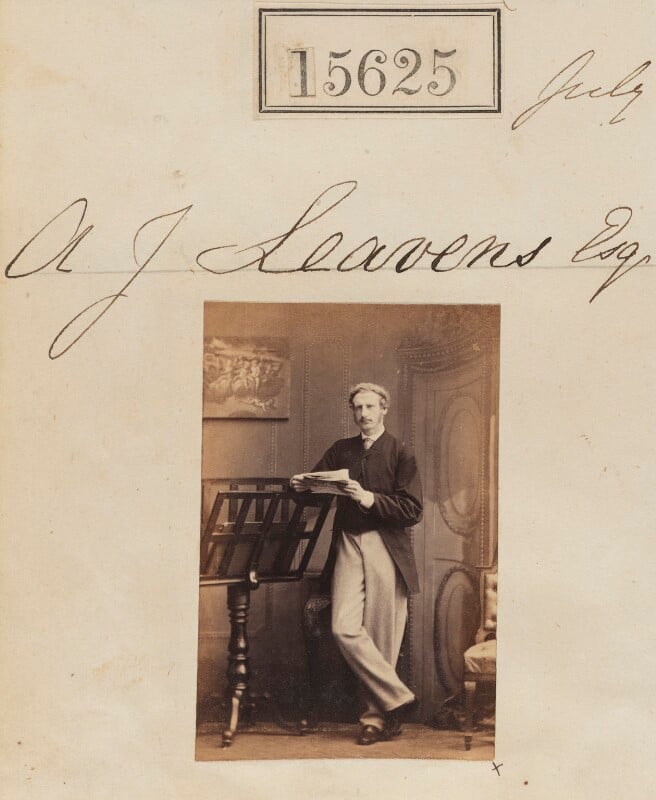 15625
July
A J Leavens Esq.
x